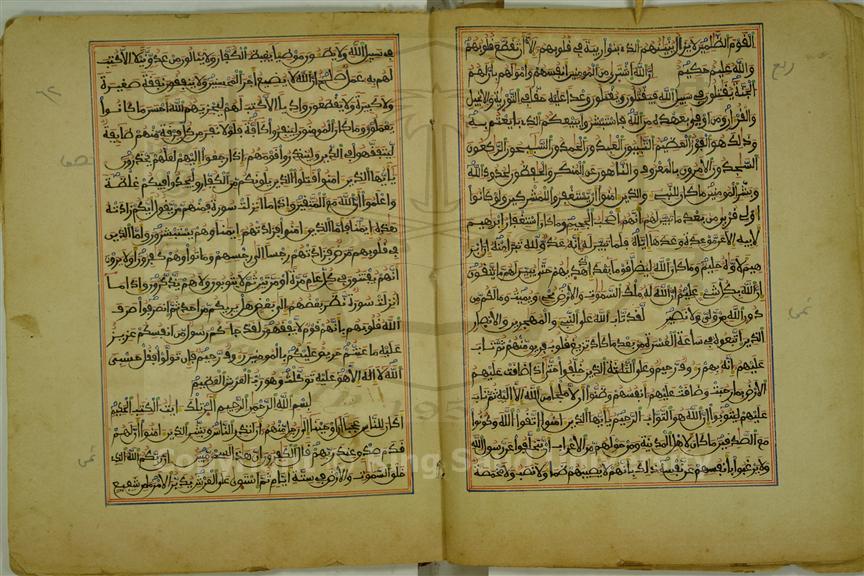 القوم الظلمين لا يزال بنينهم الذي بنوا ريبة في قلوبهم إلا أن تقطع قلوبهم
والله عليم حكيم إن الله اشترى من المومنين أنفسهم وأمولهم بأن لهم
الجنة يقتلون في سبيل الله فيقتلون ويقتلون وعدا عليه حقا في التورية والانجيل
والقرءان ومن أوفى بعهده من الله فاستبشروا ببيعكم الذي بايعتم به
وذلك هو الفوز العظيم التئبون العبدون الحمدون السئحون الركعون
السجدون الأمرون بالمعروف والناهون عن المنكر والحفظون لحدود الله
وبشر المومنين ما كان للنبي والذين امنوا أن يستغفروا للمشركين ولو كانوا
أولي قربى من بعد ما تبين لهم أنهم أصحب الجحيم وما كان استغفار ابرهيم
لأبيه إلا عن موعدة وعدها إياه فلما تبين له أنه عدو لله تبرأ منه إن ابر
هيم لأوه حليم وما كان الله ليضل قوما بعد إذ هديهم حتى يبين لهم ما يتقون
إن الله بكل شيء عليم إن الله له ملك السموت والأرض يحي ويميت وما لكم من
دون الله من ولي ولا نصير لقد تاب الله على النبي والمهجرين والأنصار
الذين اتبعوه في ساعة العسرة من بعد ما كاد تزيغ قلوب فريق منهم ثم تاب
عليهم إنه بهم رءوف رحيم وعلى الثلثة الذين خلفوا حتى إذا ضاقت عليهم
الأرض بما رحبت وضاقت عليهم أنفسهم وظنوا أن لا ملجأ من الله إلا إليه ثم تاب
عليهم ليتوبوا إن الله هو التواب الرحيم يأيها الذين امنوا اتقوا الله وكونوا
مع الصدقين ما كان لأهل المدينة ومن حولهم من الأعراب أن يتخلفوا عن رسول الله
ولا يرغبوا بأنفسهم عن نفسه ذلك بأنهم لا يصيبهم ظمأ ولا نصب ولا مخمصة
في سبيل الله ولا يطئون موطئا يغيظ الكفار ولا ينالون من عدو نيلا إلا كتب
لهم به عمل صلح إن الله لا يضيع أجر المحسنين ولا ينفقون نفقة صغيرة
ولا كبيرة ولا يقطعون واديا إلا كتب لهم ليجزيهم الله أحسن ما كانوا
يعملون وما كان المومنون لينفروا كافة فلولا نفر من كل فرقة منهم طايفة
ليتفقهوا في الدين ولينذروا قومهم إذا رجعوا إليهم لعلهم يحذرون
يأيها الذين امنوا قتلوا الذين يلونكم من الكفار وليجدوا فيكم غلظة
واعلموا أن الله مع المتقين وإذا ما أنزلت سورة فمنهم من يقول أيكم زادته
هذه إيمنا فأما الذين امنوا فزادتهم إيمنا وهم يستبشرون وأما الذين
في قلوبهم مرض فزادتهم رجسا إلى رجسهم وماتوا وهم كفرون أولا يرون
أنهم يفتنون في كل عام مرة أو مرتين ثم لا يتوبون ولا هم يذكرون وإذا ما
أنزلت سورة نظر بعضهم إلى بعض هل يريكم من أحد ثم انصرفوا صرف
الله قلوبهم بأنهم قوم لا يفقهون لقد جاكم رسول من أنفسكم عزيز
عليه ما عنتم حريص عليكم بالمومنين رءوف رحيم فإن تولوا فقل حسبي
الله لا إله إلا هو عليه توكلت وهو رب العرش العظيم
بسم الله الرحمن الرحيم الر تلك ايت الكتب الحكيم
أكان للناس عجبا أن أوحينا إلى رجل منهم أن أنذر الناس وبشر الذين امنوا أن لهم
قدم صدق عند ربهم قال الكفرون إن هذا لسحر مبين إن ربكم الله الذي
خلق السموت والأرض في ستة أيام ثم استوى على العرش يدبر الأمر ما من شفيع